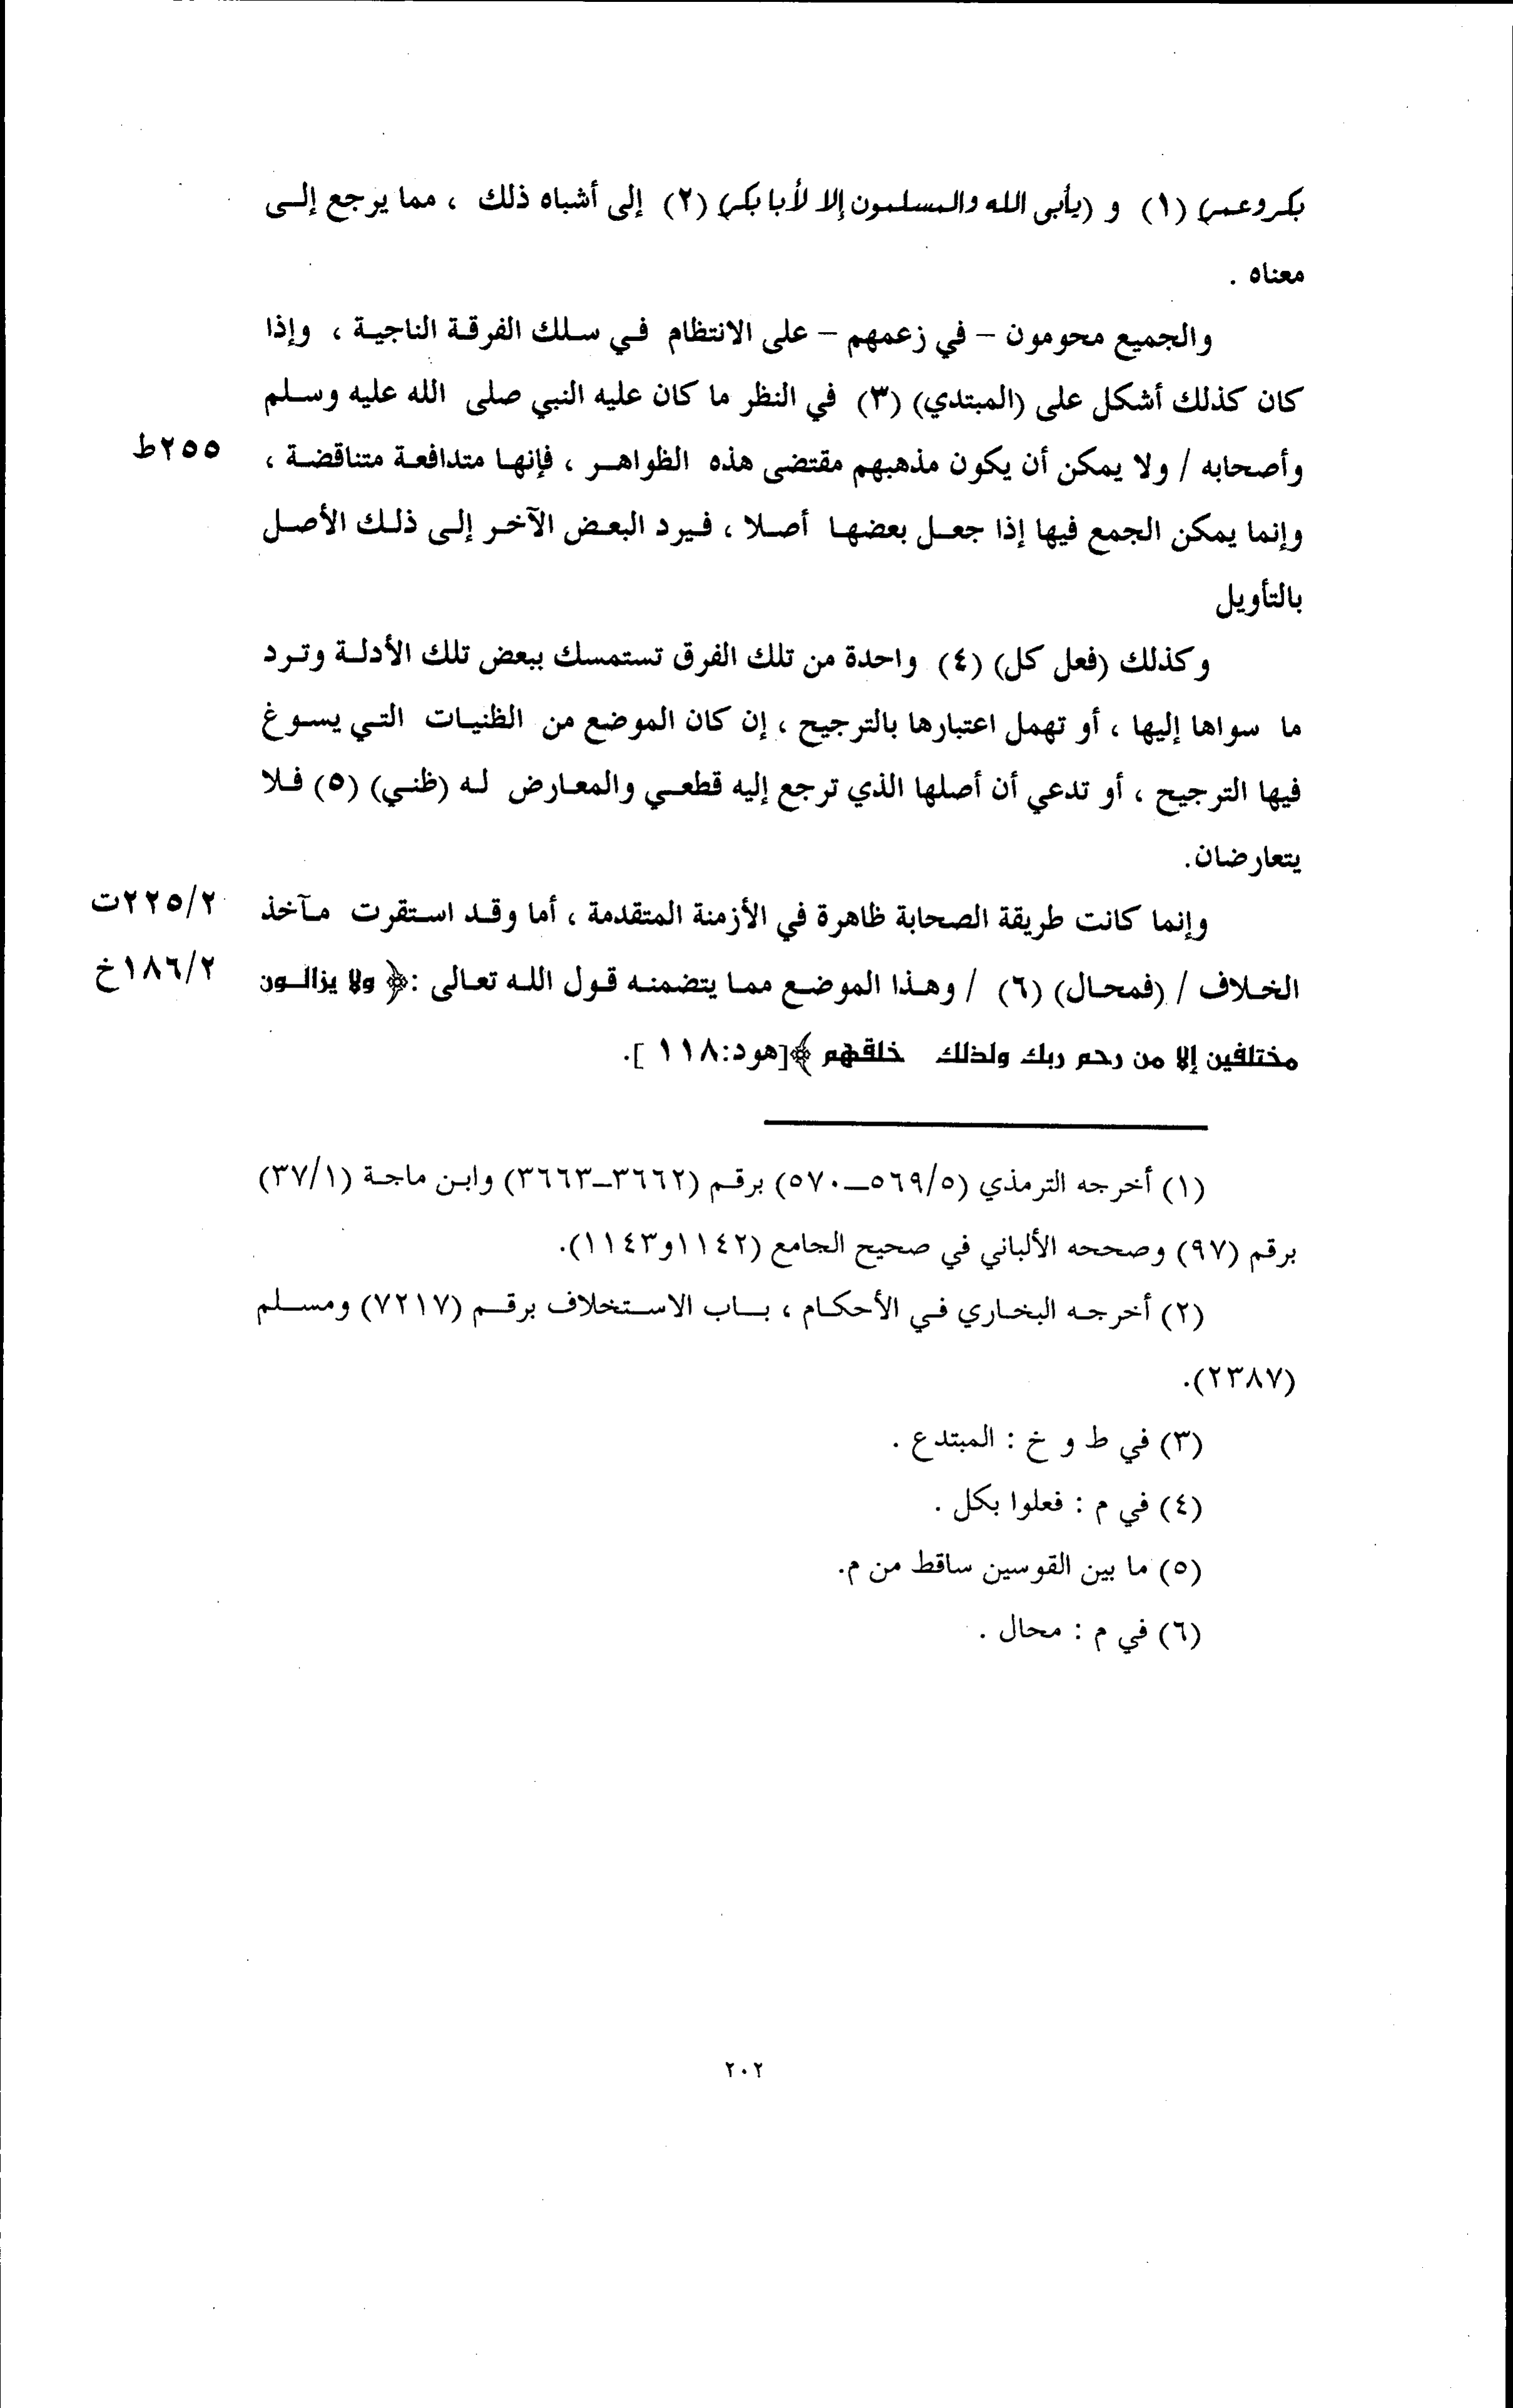 بكر وعمر) (١) و (يأبى الله والمسلمون إلا لأبا بكر) (٢) إلى أشباه ذلك ، مما يرجع إلى
معناه .
والجميع محومون – في زعمهم – على الانتظام في سلك الفرقة الناجية ، وإذا
كان كذلك أشكل على (المبتدي) (٣) في النظر ما كان عليه النبي صلى الله عليه وسلم
وأصحابه / ولا يمكن أن يكون مذهبهم مقتضى هذه الظواهر ، فإنها متدافعة متناقضة ،
٢٥٥ط
وإنما يمكن الجمع فيها إذا جعل بعضها أصلا ، فيرد البعض الآخر إلى ذلك الأصل
بالتأويل
وكذلك (فعل كل) (٤) واحدة من تلك الفرق تستمسك ببعض تلك الأدلة وترد
ما سواها إليها ، أو تهمل اعتبارها بالترجيح ، إن كان الموضع من الظنيات التي يسوغ
فيها الترجيح ، أو تدعي أن أصلها الذي ترجع إليه قطعي والمعارض له (ظني) (٥) فلا
يتعارضان.
وإنما كانت طريقة الصحابة ظاهرة في الأزمنة المتقدمة ، أما وقد استقرت مآخذ
٢٢٥/٢ت
الخلاف / (فمحال) (٦) / وهذا الموضع مما يتضمنه قول الله تعالى :﴿ ولا يزالون
١٨٦/٢خ
مختلفين إلا من رحم ربك ولذلك خلقهم ﴾[هود:١١٨ ].
(١) أخرجه الترمذي (٥/٥٦٩ــ٥٧٠) برقم (٣٦٦٢ـ٣٦٦٣) وابن ماجة (٣٧/١)
برقم (٩٧) وصححه الألباني في صحيح الجامع (١١٤٢و١١٤٣).
(٢) أخرجه البخاري في الأحكام ، باب الاستخلاف برقم (٧٢١٧) ومسلم
(٢٣٨٧).
(٣) في ط و خ : المبتدع .
(٤) في م : فعلوا بكل .
(٥) ما بين القوسين ساقط من م.
(٦) في م : محال .
٢٠٢